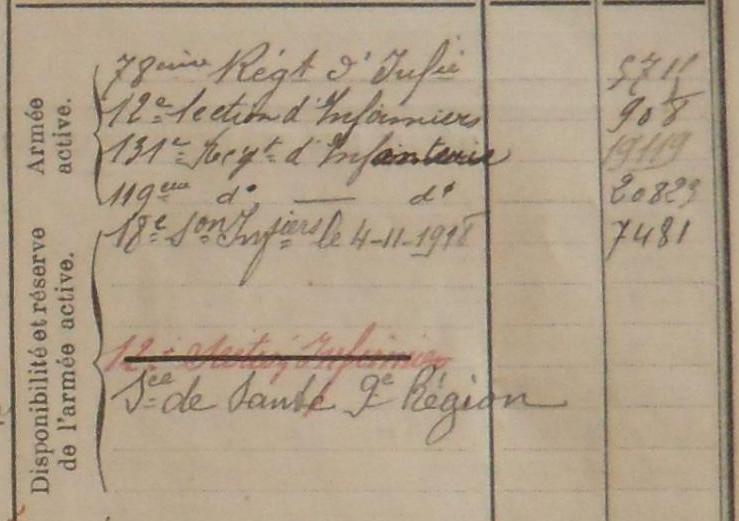 Armée active.
78eme Régt d'Infie 5711
12e Section d'Infirmiers 908
131e Regt d'Infanterie 19119
119eme do — do 20823
Disponibilité et réserve de l'armée active.
18e Son Infiers le 4-11-1918 7481
12e Section Infirmiers
Sce de Santé 9e Région